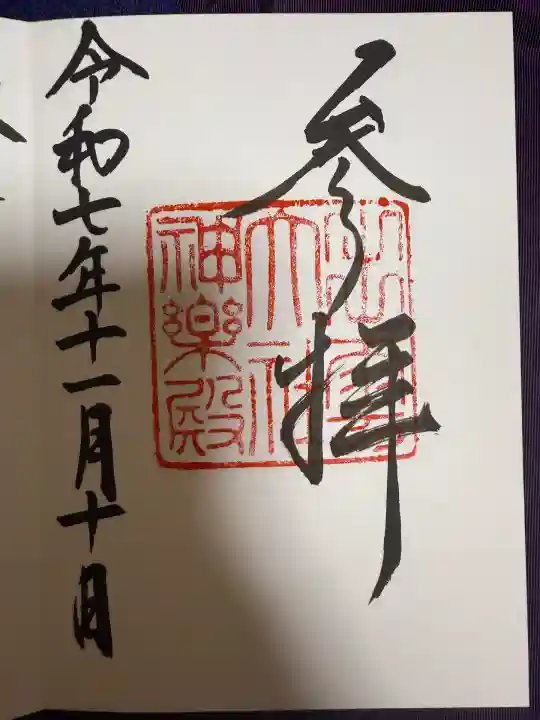 参拝
出雲
大社
神楽殿
令和七年十一月十日